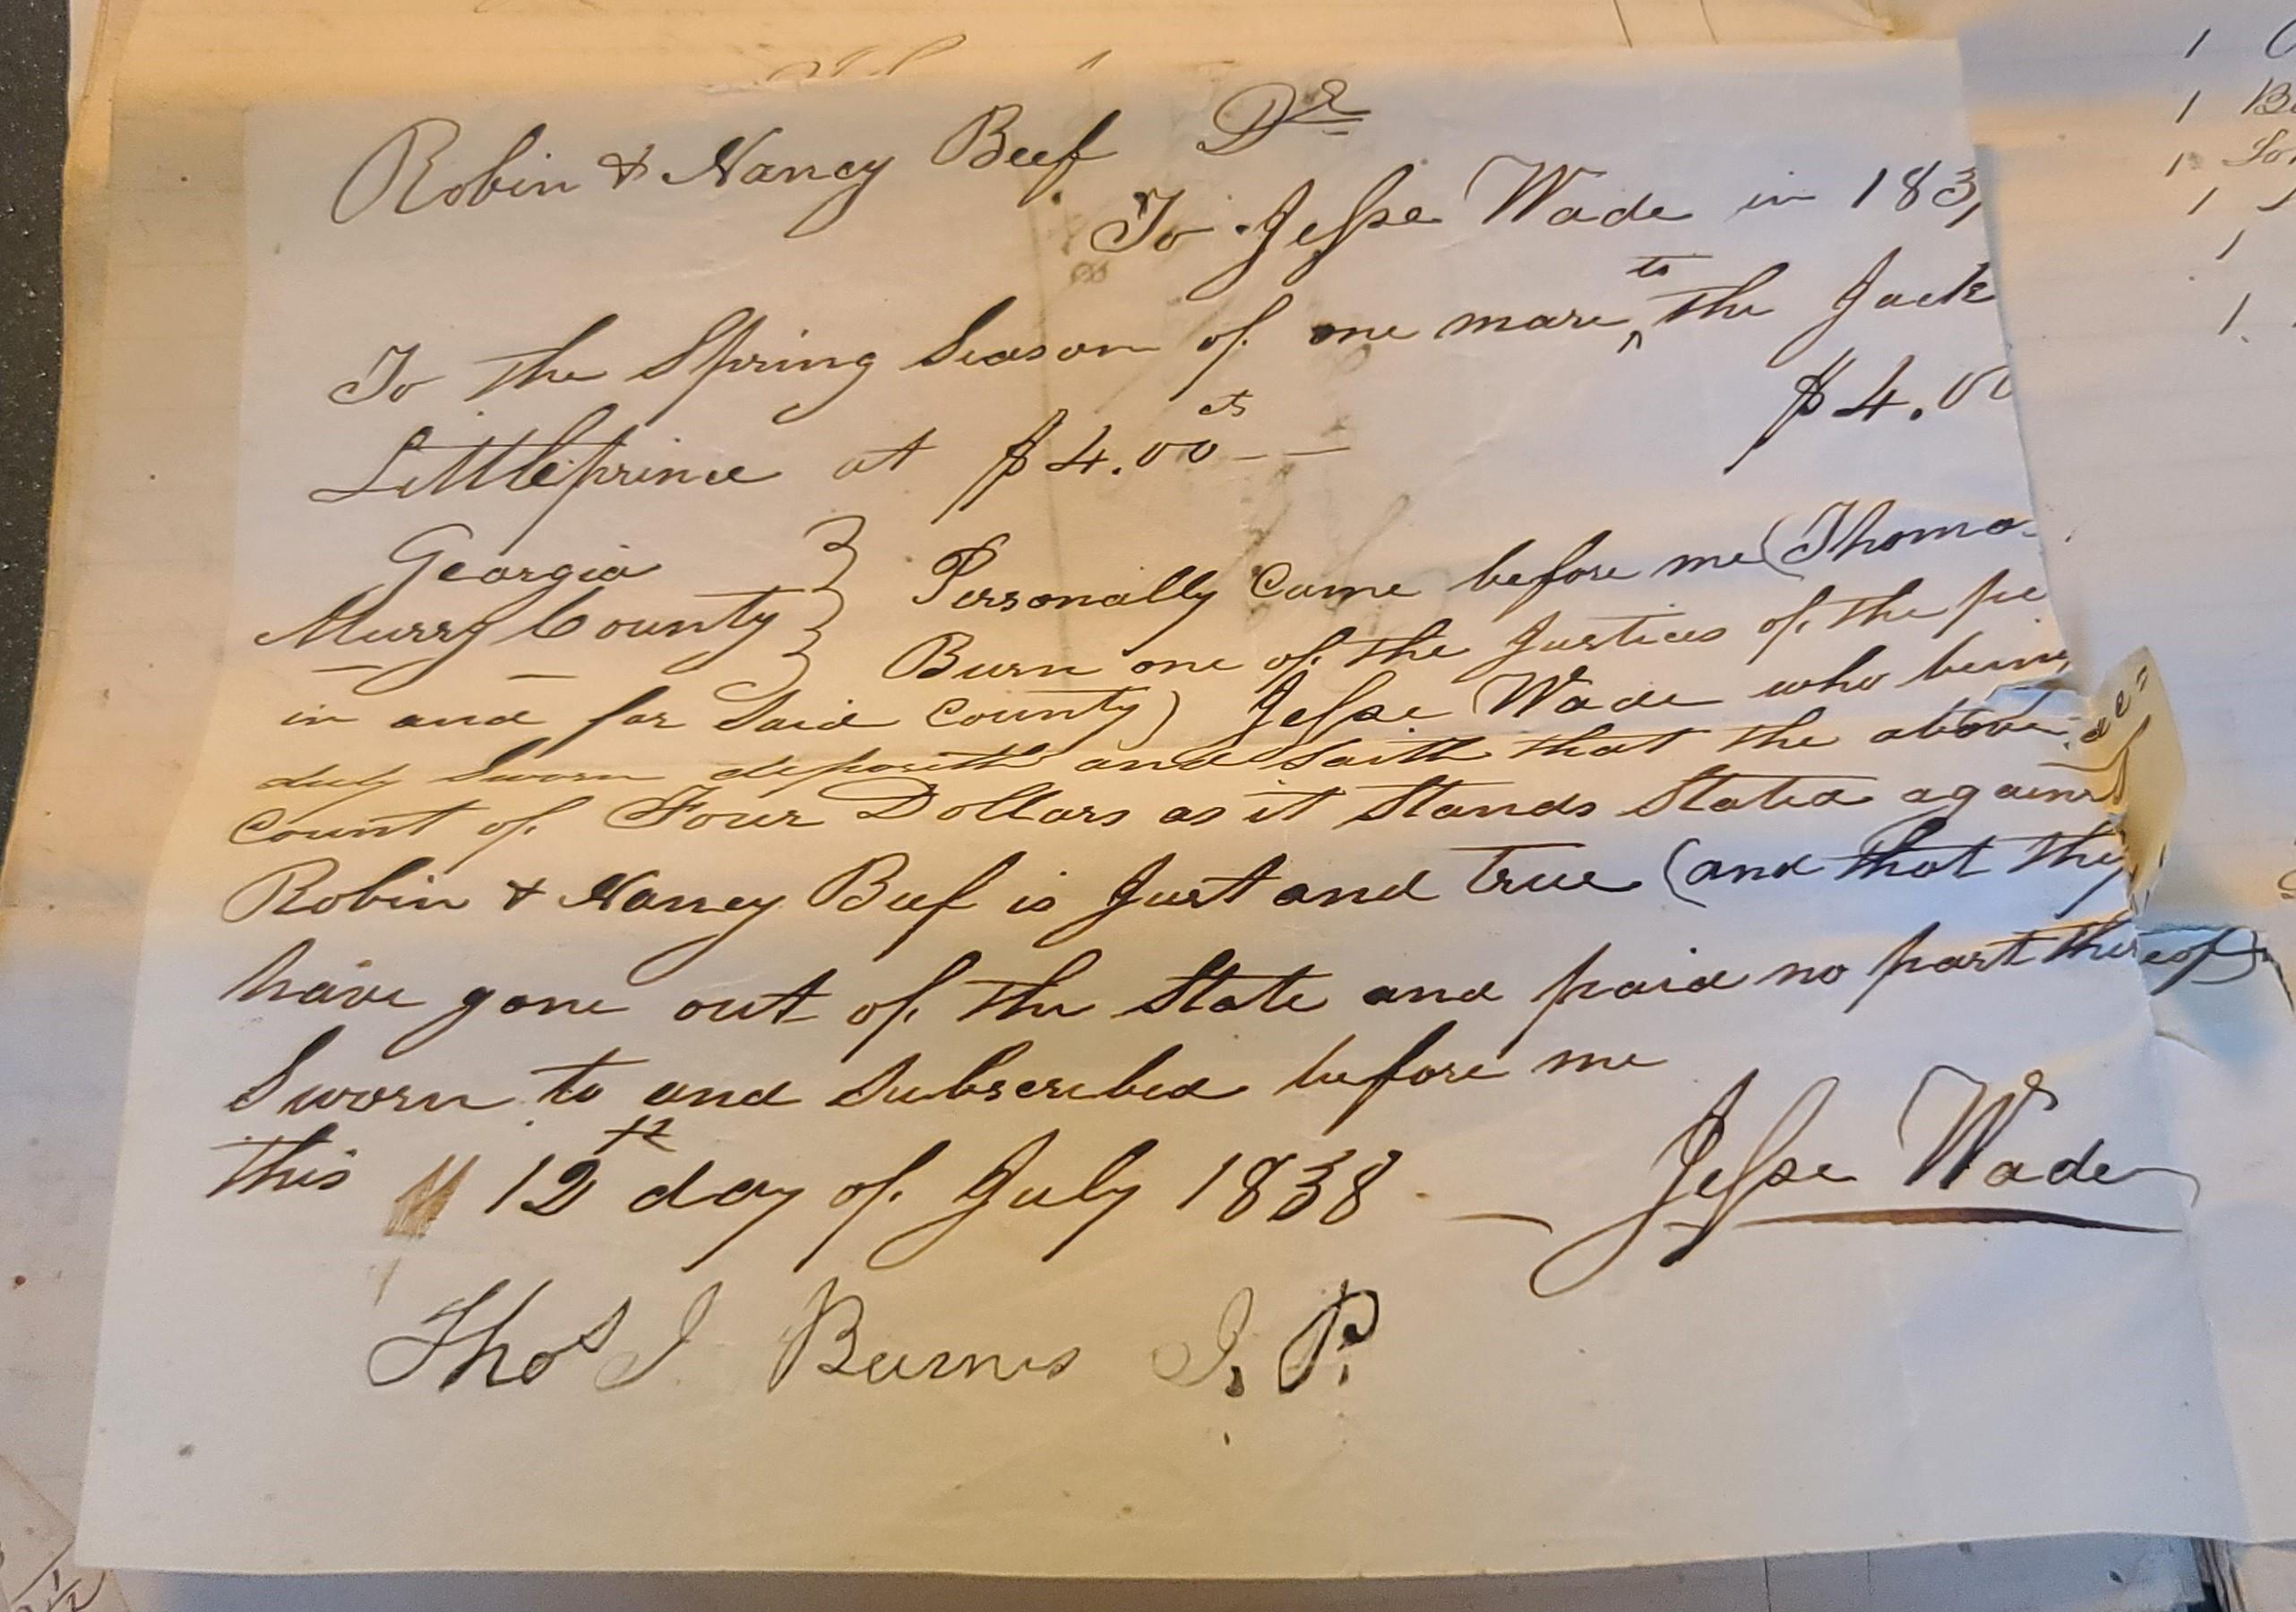 Robin & Nancy Beef Dr
To Jesse Wade in 183
To the Spring Season of one mare to the Jack
Littleprince at $4.00cts $4.00
Georgia
Murry County } Personally Came before me (Thoma
Burn one of the Justices of the pe
in and for Said County) Jesse Wade who being
duly Sworn deposith and Saith that the above ac=
count of Four Dollars as it Stands Stated against
Robin & Nancy Beef is Just and true (and that they
have gone out of the State and paid no part thereof)
Sworn to and Subscribed before me
this 12th day of July 1838 — Jesse Wade
Thos J Burns J. P.
1
1 B
1
1
1
1.
1/2